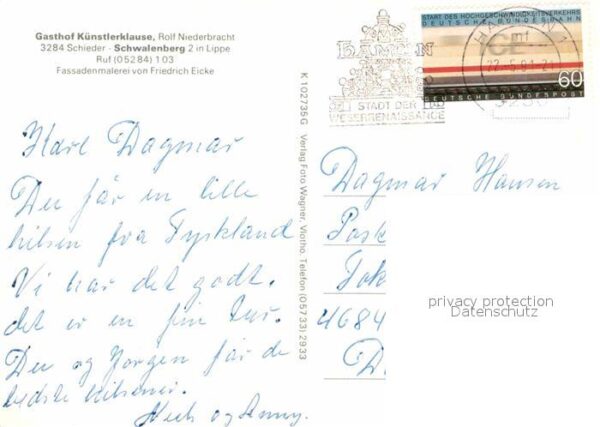 Gasthof Künstlerklause, Rolf Niederbracht
3284 Schieder - Schwalenberg 2 in Lippe
Ruf (05284) 103
Fassadenmalerei von Friedrich Eicke
Kære Dagmar
Du får en lille
hilsen fra Tyskland
Vi har det godt.
det er en fin tur.
Du og Jørgen får de
bedste hilsner.
og Anny.
K 102735G Verlag Foto Wagner, Vlotho, Telefon (05733) 2933
START DES HOCHGESCHWINDIGKEITSVERKEHRS
DEUTSCHE BUNDESBAHN
ICE
60
DEUTSCHE BUNDESPOST
HAMELN
STADT DER
WESERRENAISSANCE
HAMELN 1
mf
Dagmar Hansen
Post
Tok
4684
D.
privacy protection
Datenschutz